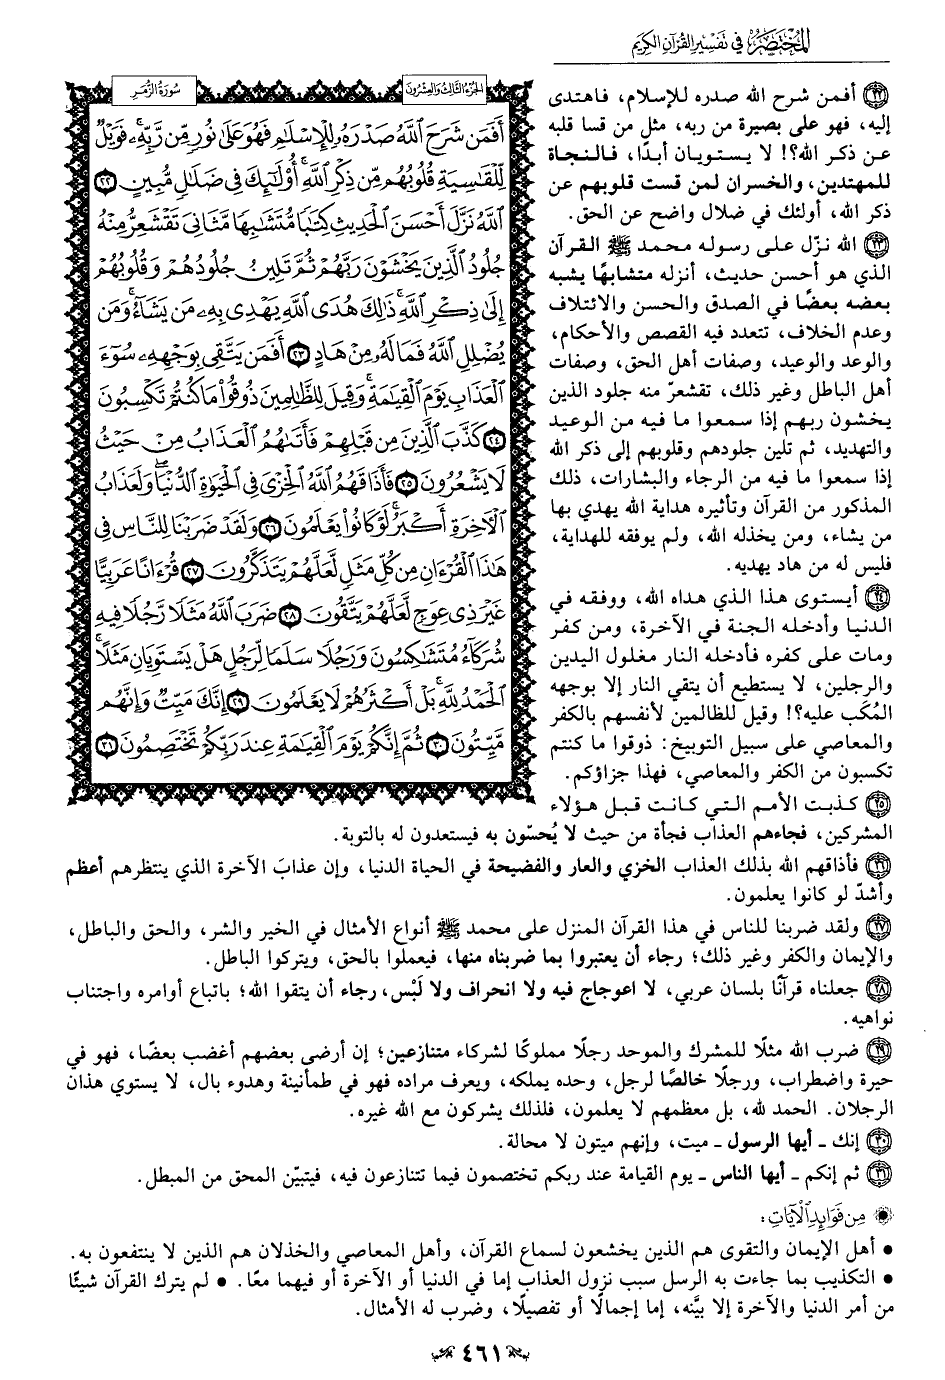 المختصر في تفسير القرآن الكريم
الجزء الثالث والعشرون
سورة الزمر
أَفَمَن شَرَحَ اللَّهُ صَدْرَهُ لِلْإِسْلَامِ فَهُوَ عَلَىٰ نُورٍ مِّن رَّبِّهِ ۚ فَوَيْلٌ
لِّلْقَاسِيَةِ قُلُوبُهُم مِّن ذِكْرِ اللَّهِ ۚ أُولَٰئِكَ فِي ضَلَالٍ مُّبِينٍ ٢٢
اللَّهُ نَزَّلَ أَحْسَنَ الْحَدِيثِ كِتَابًا مُّتَشَابِهًا مَّثَانِيَ تَقْشَعِرُّ مِنْهُ
جُلُودُ الَّذِينَ يَخْشَوْنَ رَبَّهُمْ ثُمَّ تَلِينُ جُلُودُهُمْ وَقُلُوبُهُمْ
إِلَىٰ ذِكْرِ اللَّهِ ۚ ذَٰلِكَ هُدَى اللَّهِ يَهْدِي بِهِ مَن يَشَاءُ ۚ وَمَن
يُضْلِلِ اللَّهُ فَمَا لَهُ مِنْ هَادٍ ٢٣ أَفَمَن يَتَّقِي بِوَجْهِهِ سُوءَ
الْعَذَابِ يَوْمَ الْقِيَامَةِ ۚ وَقِيلَ لِلظَّالِمِينَ ذُوقُوا مَا كُنتُمْ تَكْسِبُونَ
٢٤ كَذَّبَ الَّذِينَ مِن قَبْلِهِمْ فَأَتَاهُمُ الْعَذَابُ مِنْ حَيْثُ
لَا يَشْعُرُونَ ٢٥ فَأَذَاقَهُمُ اللَّهُ الْخِزْيَ فِي الْحَيَاةِ الدُّنْيَا ۖ وَلَعَذَابُ
الْآخِرَةِ أَكْبَرُ ۚ لَوْ كَانُوا يَعْلَمُونَ ٢٦ وَلَقَدْ ضَرَبْنَا لِلنَّاسِ فِي
هَٰذَا الْقُرْءَانِ مِن كُلِّ مَثَلٍ لَّعَلَّهُمْ يَتَذَكَّرُونَ ٢٧ قُرْءَانًا عَرَبِيًّا
غَيْرَ ذِي عِوَجٍ لَّعَلَّهُمْ يَتَّقُونَ ٢٨ ضَرَبَ اللَّهُ مَثَلًا رَّجُلًا فِيهِ
شُرَكَاءُ مُتَشَاكِسُونَ وَرَجُلًا سَلَمًا لِّرَجُلٍ هَلْ يَسْتَوِيَانِ مَثَلًا ۚ
الْحَمْدُ لِلَّهِ ۚ بَلْ أَكْثَرُهُمْ لَا يَعْلَمُونَ ٢٩ إِنَّكَ مَيِّتٌ وَإِنَّهُم
مَّيِّتُونَ ٣٠ ثُمَّ إِنَّكُمْ يَوْمَ الْقِيَامَةِ عِندَ رَبِّكُمْ تَخْتَصِمُونَ ٣١
٢٢ أفمن شرح الله صدره للإسلام، فاهتدى
إليه، فهو على بصيرة من ربه، مثل من قسا قلبه
عن ذكر الله؟! لا يستويان أبدًا، فالنجاة
للمهتدين، والخسران لمن قست قلوبهم عن
ذكر الله، أولئك في ضلال واضح عن الحق.
٢٣ الله نزّل على رسوله محمد ﷺ القرآن
الذي هو أحسن حديث، أنزله متشابهًا يشبه
بعضه بعضًا في الصدق والحسن والائتلاف
وعدم الخلاف، تتعدد فيه القصص والأحكام،
والوعد والوعيد، وصفات أهل الحق، وصفات
أهل الباطل وغير ذلك، تقشعرّ منه جلود الذين
يخشون ربهم إذا سمعوا ما فيه من الوعيد
والتهديد، ثم تلين جلودهم وقلوبهم إلى ذكر الله
إذا سمعوا ما فيه من الرجاء والبشارات، ذلك
المذكور من القرآن وتأثيره هداية الله يهدي بها
من يشاء، ومن يخذله الله، ولم يوفقه للهداية،
فليس له من هاد يهديه.
٢٤ أيستوي هذا الذي هداه الله، ووفقه في
الدنيا وأدخله الجنة في الآخرة، ومن كفر
ومات على كفره فأدخله النار مغلول اليدين
والرجلين، لا يستطيع أن يتقي النار إلا بوجهه
المُكَب عليه؟! وقيل للظالمين لأنفسهم بالكفر
والمعاصي على سبيل التوبيخ: ذوقوا ما كنتم
تكسبون من الكفر والمعاصي، فهذا جزاؤكم.
٢٥ كذبت الأمم التي كانت قبل هؤلاء
المشركين، فجاءهم العذاب فجأة من حيث لا يُحسّون به فيستعدون له بالتوبة.
٢٦ فأذاقهم الله بذلك العذاب الخزي والعار والفضيحة في الحياة الدنيا، وإن عذابَ الآخرة الذي ينتظرهم أعظم
وأشدّ لو كانوا يعلمون.
٢٧ ولقد ضربنا للناس في هذا القرآن المنزل على محمد ﷺ أنواع الأمثال في الخير والشر، والحق والباطل،
والإيمان والكفر وغير ذلك؛ رجاء أن يعتبروا بما ضربناه منها، فيعملوا بالحق، ويتركوا الباطل.
٢٨ جعلناه قرآنًا بلسان عربي، لا اعوجاج فيه ولا انحراف ولا لَبْس، رجاء أن يتقوا الله؛ باتباع أوامره واجتناب
نواهيه.
٢٩ ضرب الله مثلًا للمشرك والموحد رجلًا مملوكًا لشركاء متنازعين؛ إن أرضى بعضهم أغضب بعضًا، فهو في
حيرة واضطراب، ورجلًا خالصًا لرجل، وحده يملكه، ويعرف مراده فهو في طمأنينة وهدوء بال، لا يستوي هذان
الرجلان. الحمد لله، بل معظمهم لا يعلمون، فلذلك يشركون مع الله غيره.
٣٠ إنك ـ أيها الرسول ـ ميت، وإنهم ميتون لا محالة.
٣١ ثم إنكم ـ أيها الناس ـ يوم القيامة عند ربكم تختصمون فيما تتنازعون فيه، فيتبيّن المحق من المبطل.
من فوائد الآيات:
• أهل الإيمان والتقوى هم الذين يخشعون لسماع القرآن، وأهل المعاصي والخذلان هم الذين لا ينتفعون به.
• التكذيب بما جاءت به الرسل سبب نزول العذاب إما في الدنيا أو الآخرة أو فيهما معًا. • لم يترك القرآن شيئًا
من أمر الدنيا والآخرة إلا بيَّنه، إما إجمالًا أو تفصيلًا، وضرب له الأمثال.
٤٦١